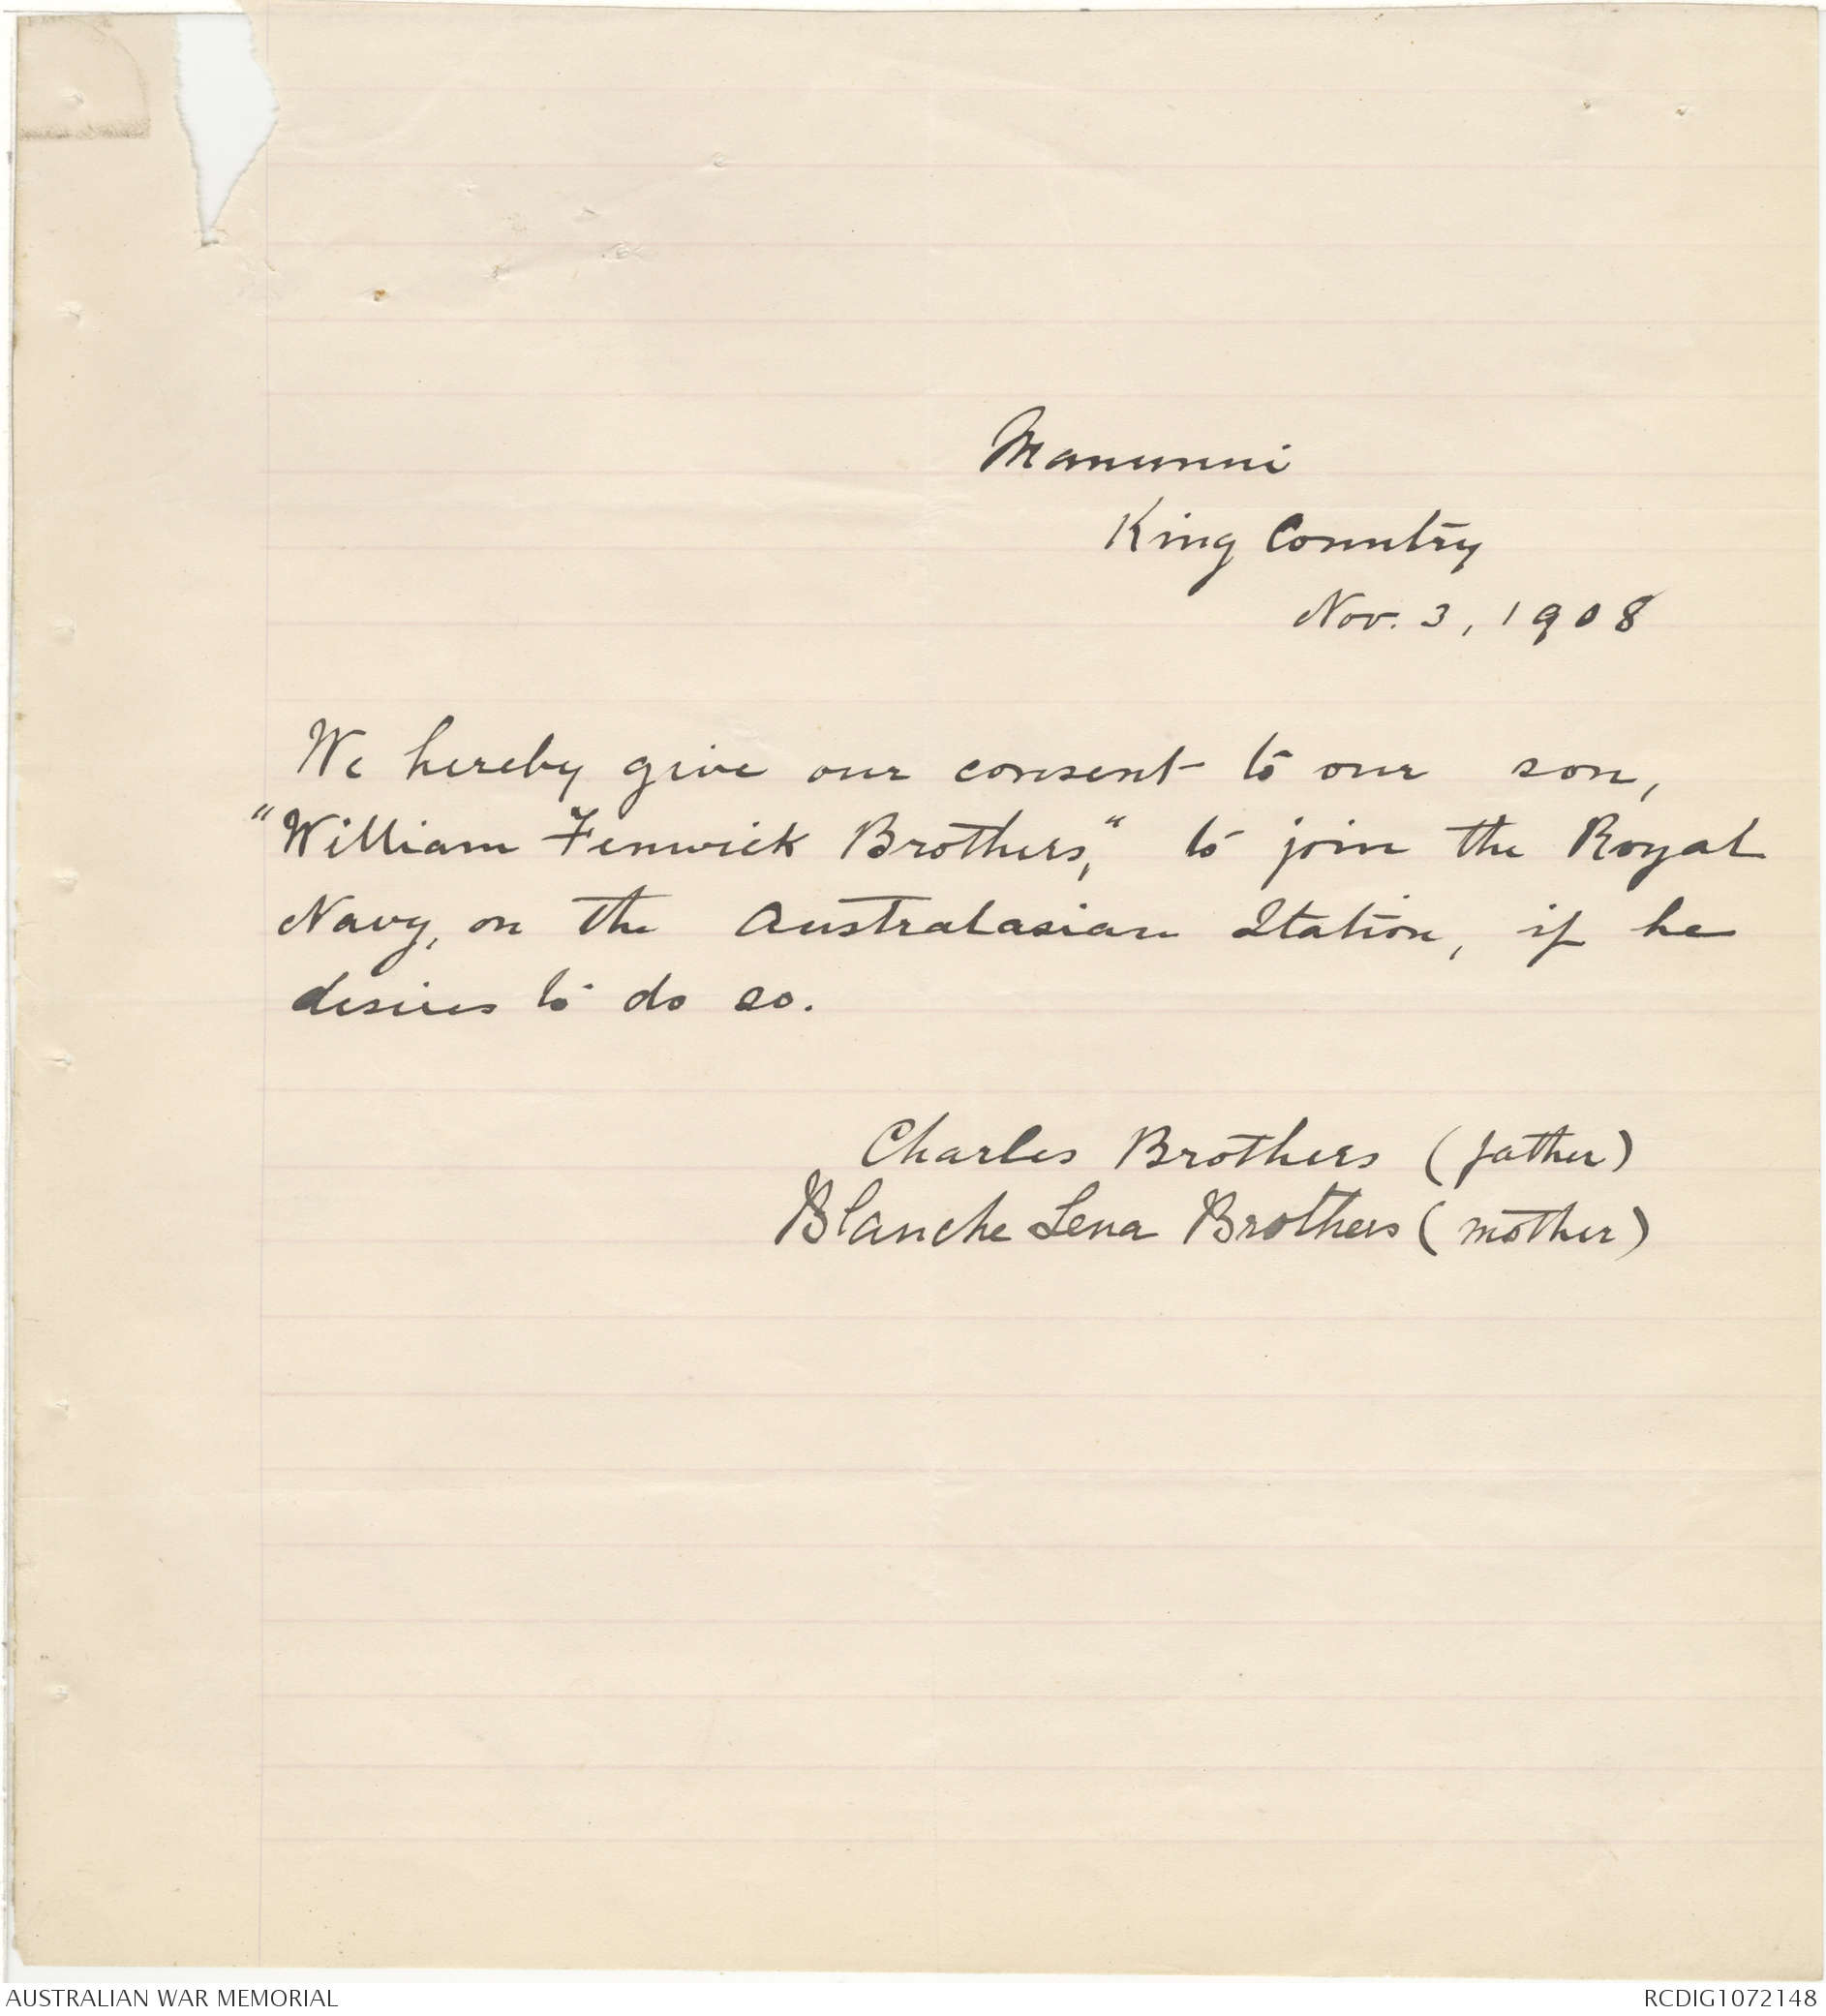 Manunui
King Country
Nov. 3, 1908
We hereby give our consent to our son,
"William Fenwick Brothers," to join the Royal
Navy, on the Australasian Station, if he
desires to do so.
Charles Brothers (father)
Blanche Lena Brothers (mother)
AUSTRALIAN WAR MEMORIAL
RCDIG1072148